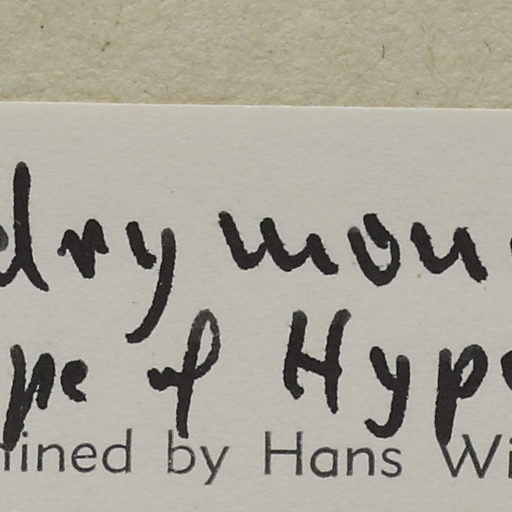 drymou
pe of Hype
ined by Hans Wi